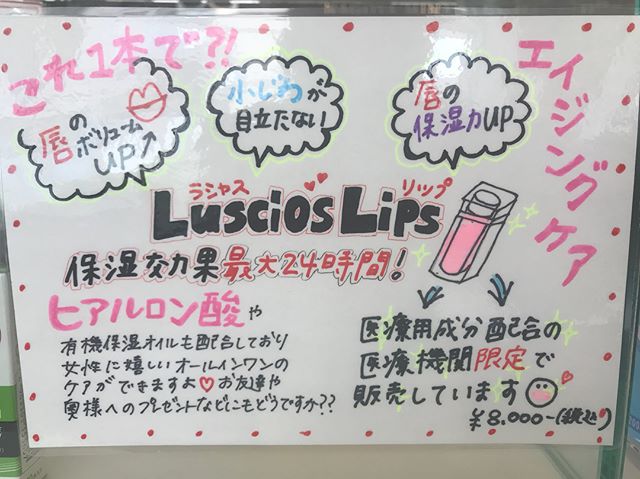 これ1本で?!
エイジングケア
唇の
ボリューム
UP↑
小じわが
目立たない
唇の
保湿力UP
ラシャス リップ
Luscios Lips
保湿効果最大24時間!
ヒアルロン酸や
有機保湿オイルも配合しており
女性に嬉しいオールインワンの
ケアができますよ♡お友達や
奥様へのプレゼントなどにもどうですか??
医療用成分配合の
医療機関限定で
販売しています
¥8.000-(税込)